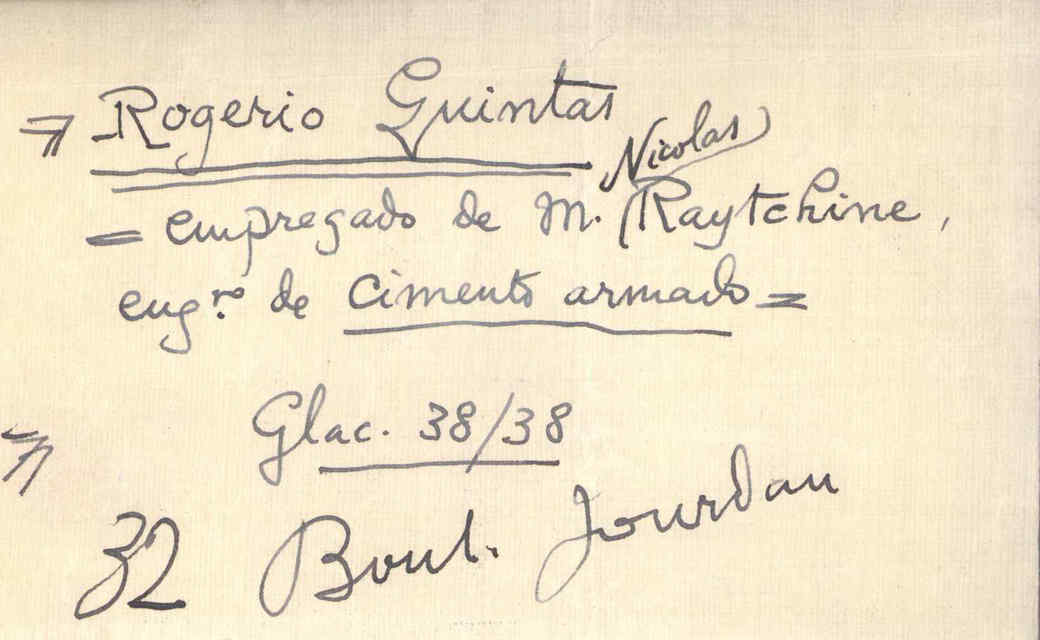 Rogerio Guintas
= empregado de M. Nicolas Raytchine,
eng.ro de cimento armado =
Glac. 38/38
32 Boul. Jourdan